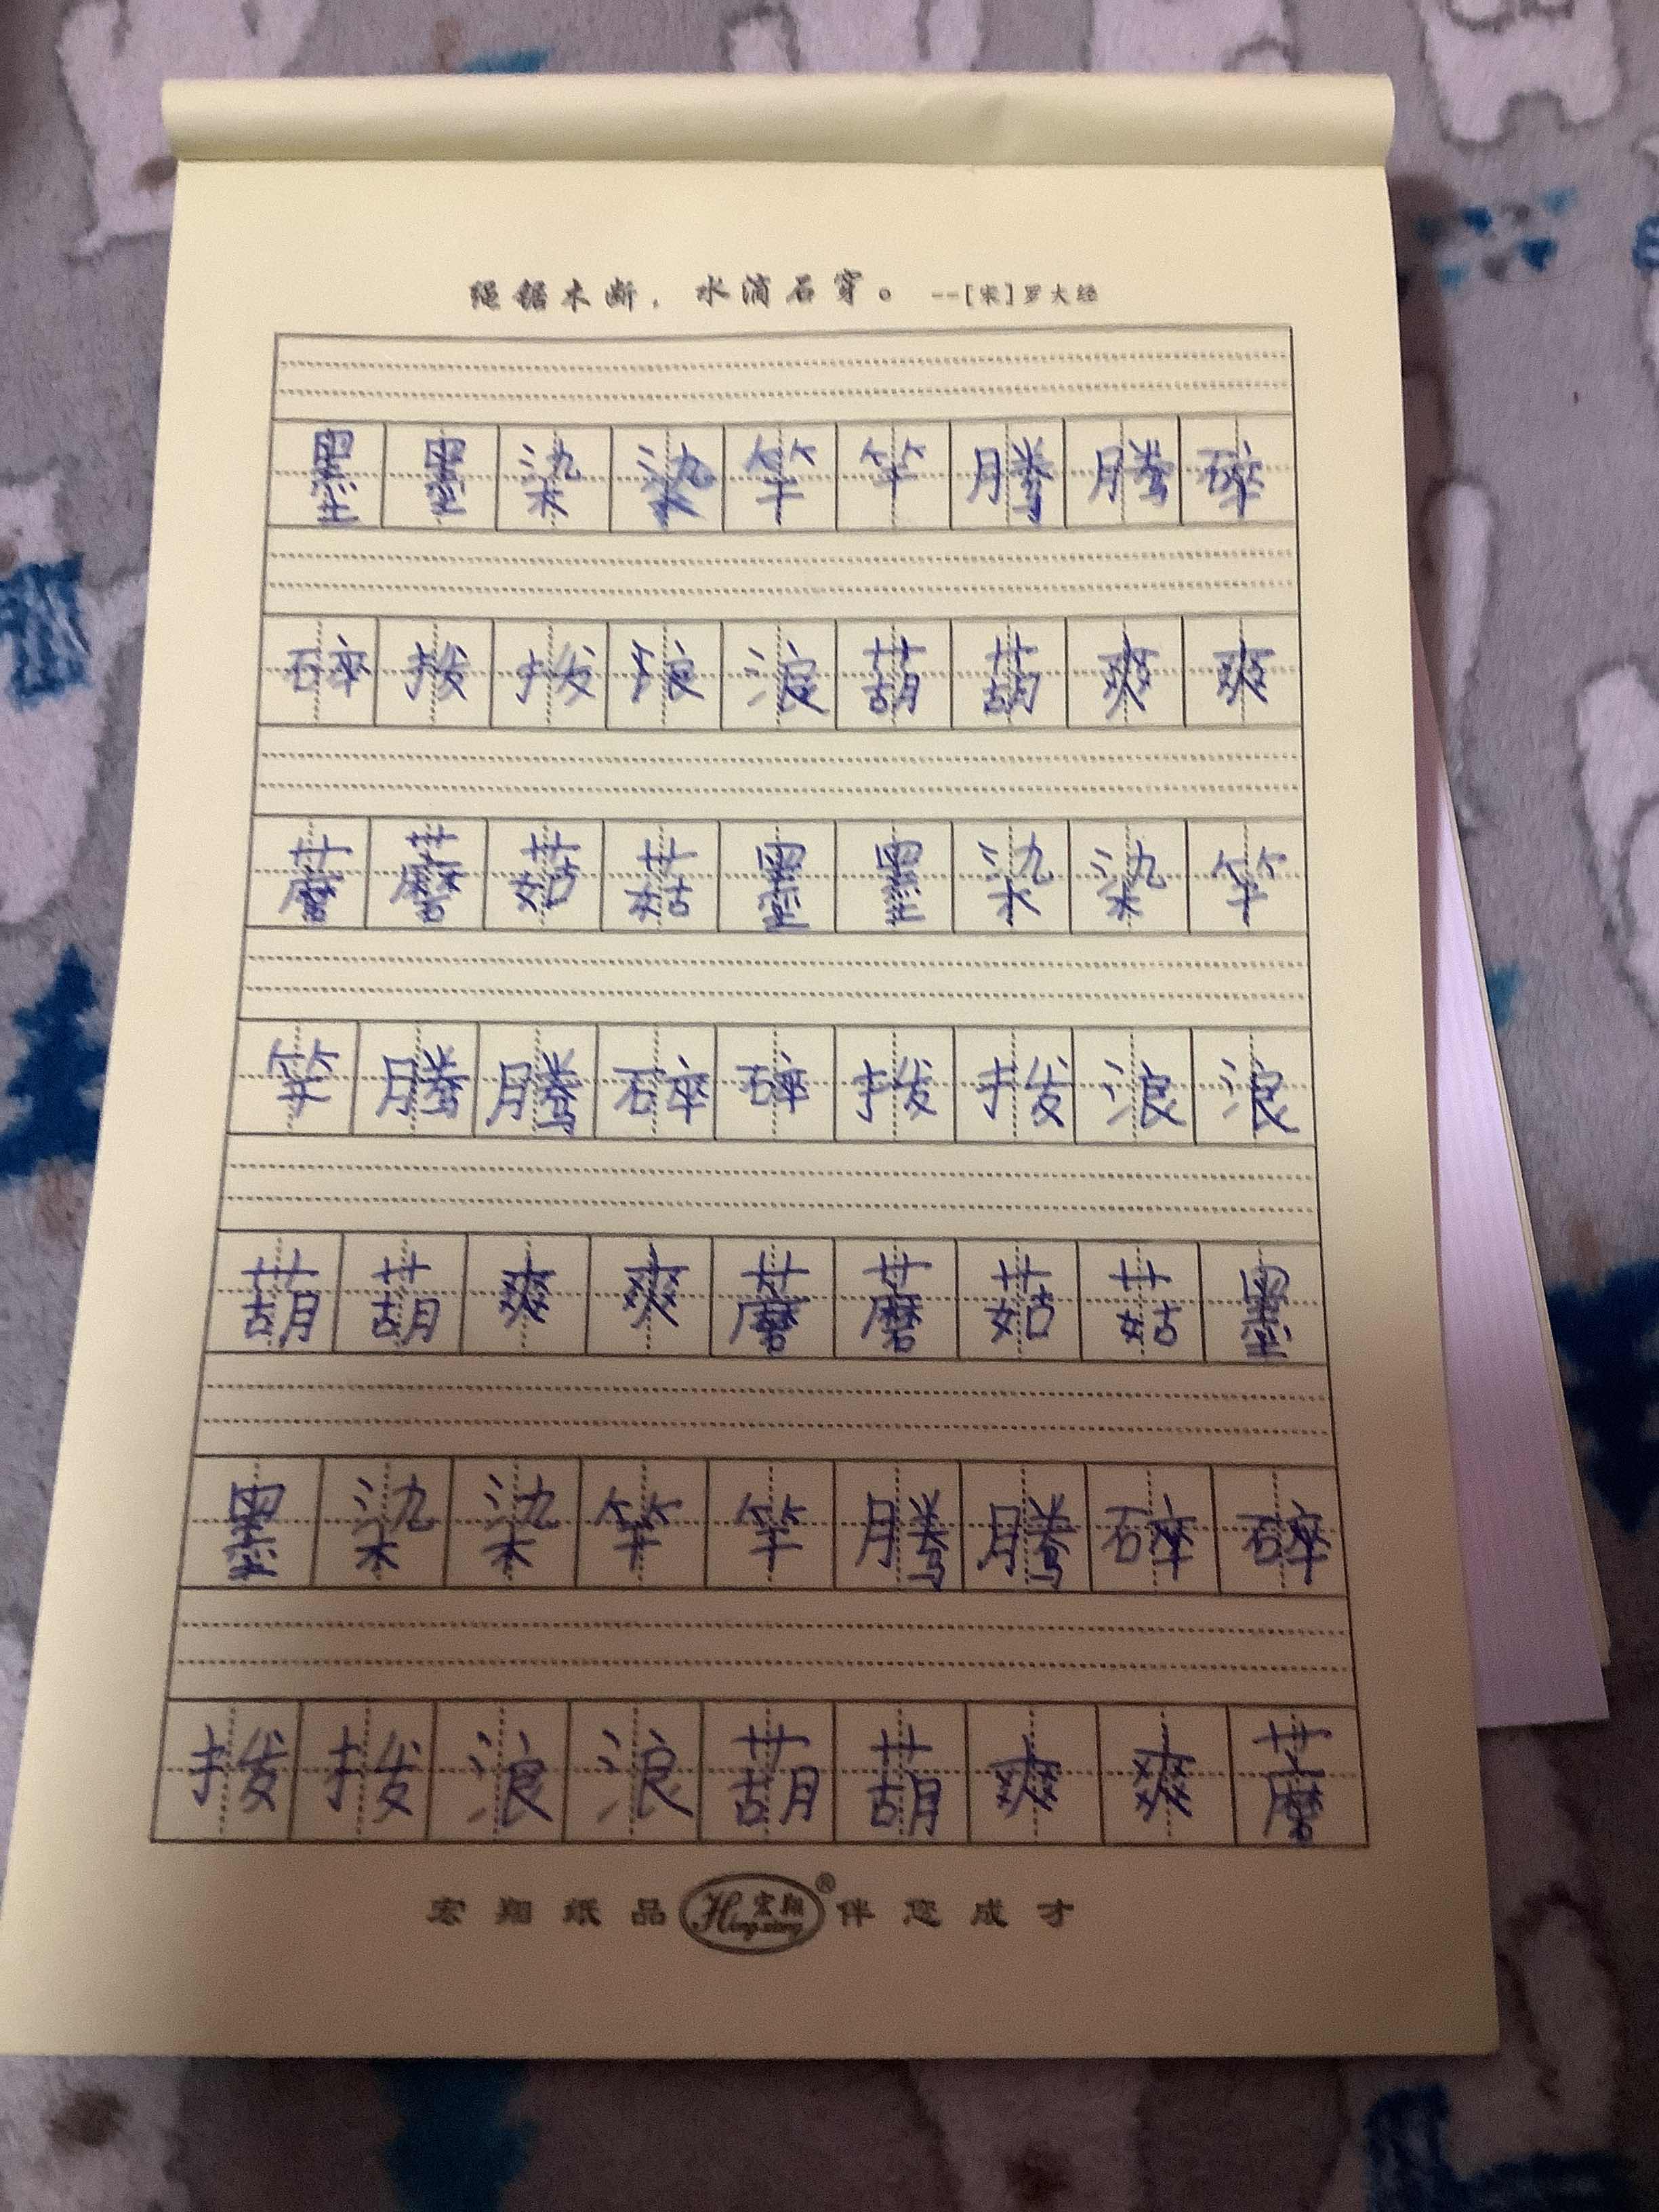 绳锯木断，水滴石穿。--[宋]罗大经
墨墨染染竿竿腾腾碎
碎拨拨浪浪葫葫爽爽
蘑蘑菇菇墨墨染染竿
竿腾腾碎碎拨拨浪浪
葫葫爽爽蘑蘑菇菇墨
墨染染竿竿腾腾碎碎
拨拨浪浪葫葫爽爽蘑
宏翔纸品 宏翔 Hongxiang ® 伴您成才